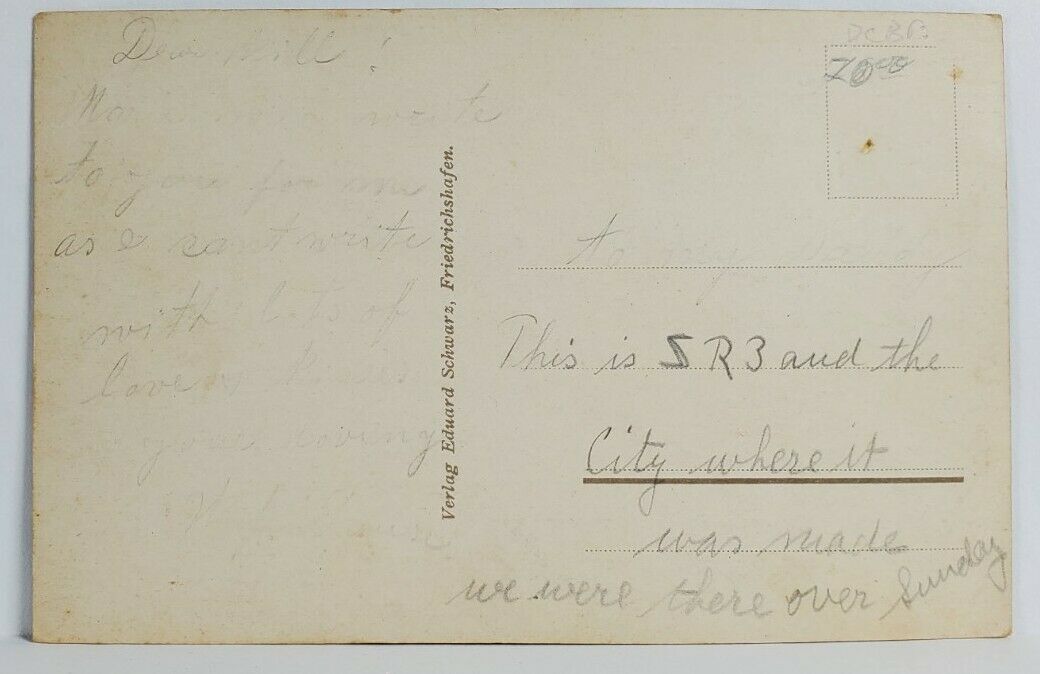 Dear
write
to you for me
as I cant write
with lots of
love & kisses
your loving
Verlag Eduard Schwarz, Friedrichshafen.
to my
This is ZR3 and the
City where it
was made
we were there over Sunday